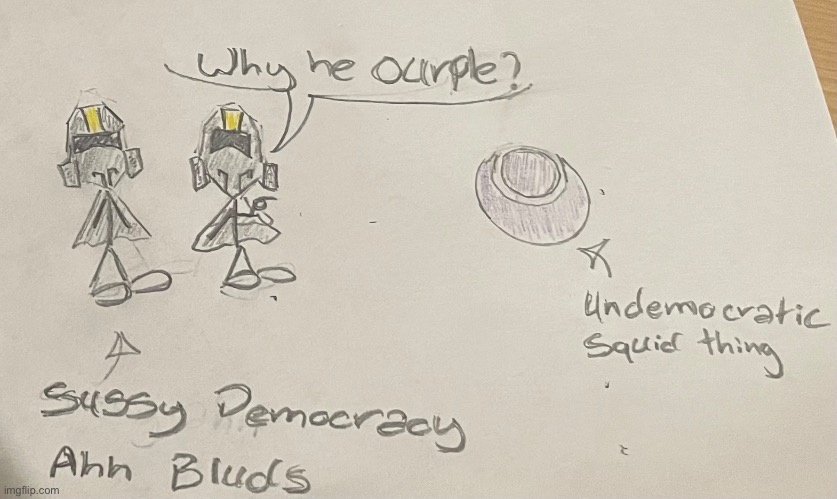 Why he ourple?
Undemocratic
Squid thing
Sussy Democracy
Ahh Bluds
imgflip.com